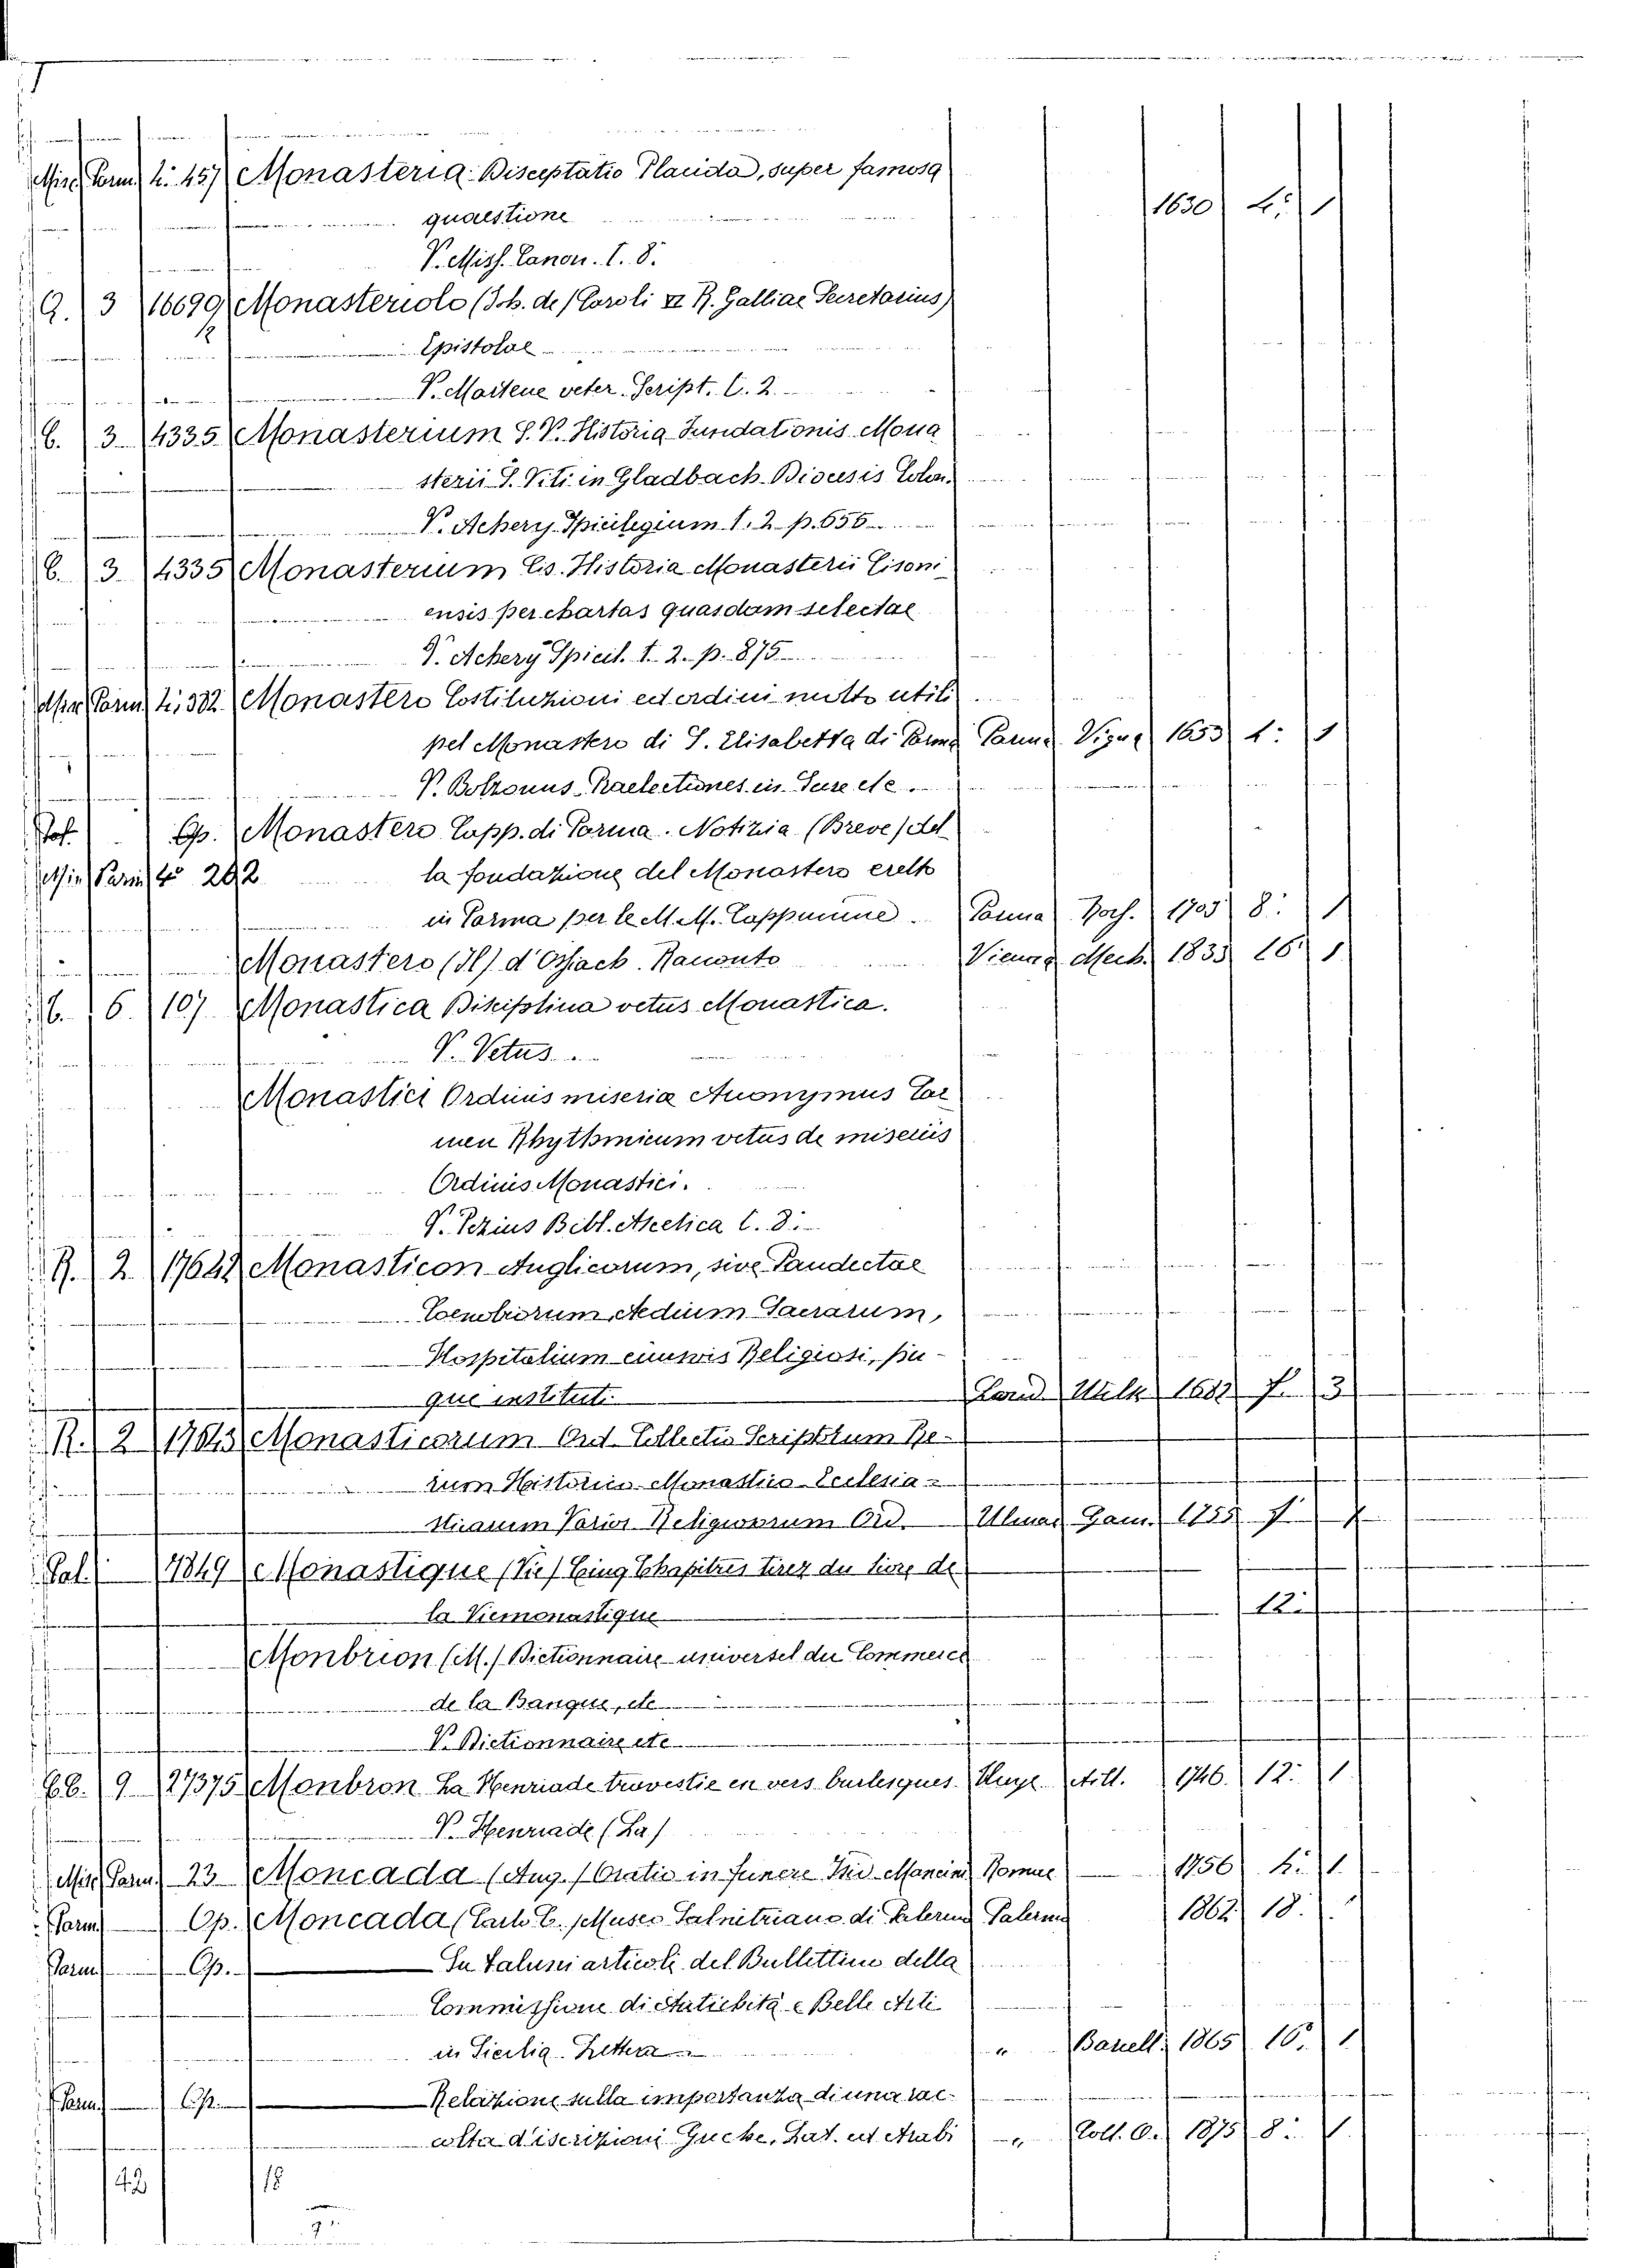 Misc. Parm. 4: 457 Monasteria. Disceptatio Placida, super famosa
quaestione 1630 4: 1
V. Miss. Canon. t. 8.
Q. 3 16699 Monasteriolo (Joh. de) Caroli VI R. Galliae Secretarius)
Epistolae
V. Martene veter. Script. t. 2.
C. 3 4335 Monasterium S. V. Historia Fundationis Mona
sterii S. Viti in Gladbach Diocesis Colon.
V. Achery Spicilegium t. 2 p. 656
C. 3 4335 Monasterium Cs. Historia Monasterii Cisoni
ensis per chartas quasdam selectae
V. Achery Spicil. t. 2. p. 875
Misc. Parm. 4: 382 Monastero Costituzioni ed ordini molto utili
pel Monastero di S. Elisabetta di Parma Parma Vigna 1653 4: 1
V. Bolzonus Praelectiones in Jure etc.
Op. Monastero Capp. di Parma. Notizia (Breve) del
Misc. Parm. 4° 292 la fondazione del Monastero eretto
in Parma per le M. M. Cappuccine. Parma 1703 8: 1
Monastero (Il) d'Ossiach. Racconto Vienna Mech. 1833 16: 1
6. 107 Monastica Disciplina vetus Monastica.
V. Vetus
Monastici Ordinis miseria Anonymus Car
men Rhythmicum vetus de miseriis
Ordinis Monastici.
V. Pezius Bibl. Ascetica t. 8.
R. 2 Monasticon Anglicorum, sive Pandectae
Coenobiorum, Aedium Sacrarum,
Hospitalium
que instituti Lond. 3
R. 2 Monasticorum Ord. Collectio Scriptorum Re-
rum Historico Monastico Ecclesia-
sticarum Varior. Religiosorum Ord. Ulmae Gaum 1755 f.
Pal. 4849 Monastique (Vie) Cinq Chapitres tirez du livre de
la Vie monastique 12:
Monbrion (M.) Dictionnaire universel du Commerce
de la Banque, etc
V. Dictionnaire etc
CC. 9 27375 Monbron La Henriade travestie en vers burlesques. 1746. 12: 1
V. Henriade (La)
Misc. Parm. 23 Moncada (Aug.) Oratio in funere Mancini Romae 1756 4: 1
Parm. Op. Moncada (Carlo C.) Museo Salnitriano di Palermo Palermo 1862 18.
Parm. Op. Su Taluni articoli del Bullettino della
Commissione di Antichità e Belle Arti
in Sicilia Lettera " Barell. 1865 16: 1
Parm. Op. Relazione sulla importanza di una rac-
colta d'iscrizioni Greche, Lat. ed Arabi " 1875 8: 1
42 18